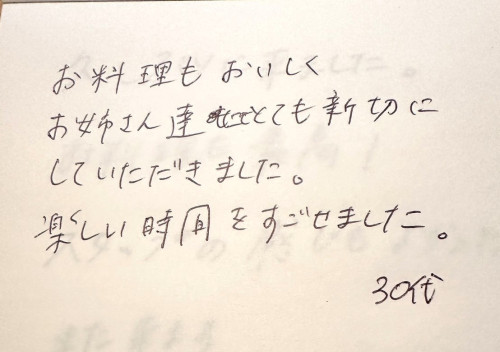 お料理も おいしく
お姉さん達とても新切に
していただきました。
楽しい時間をすごせました。
30代